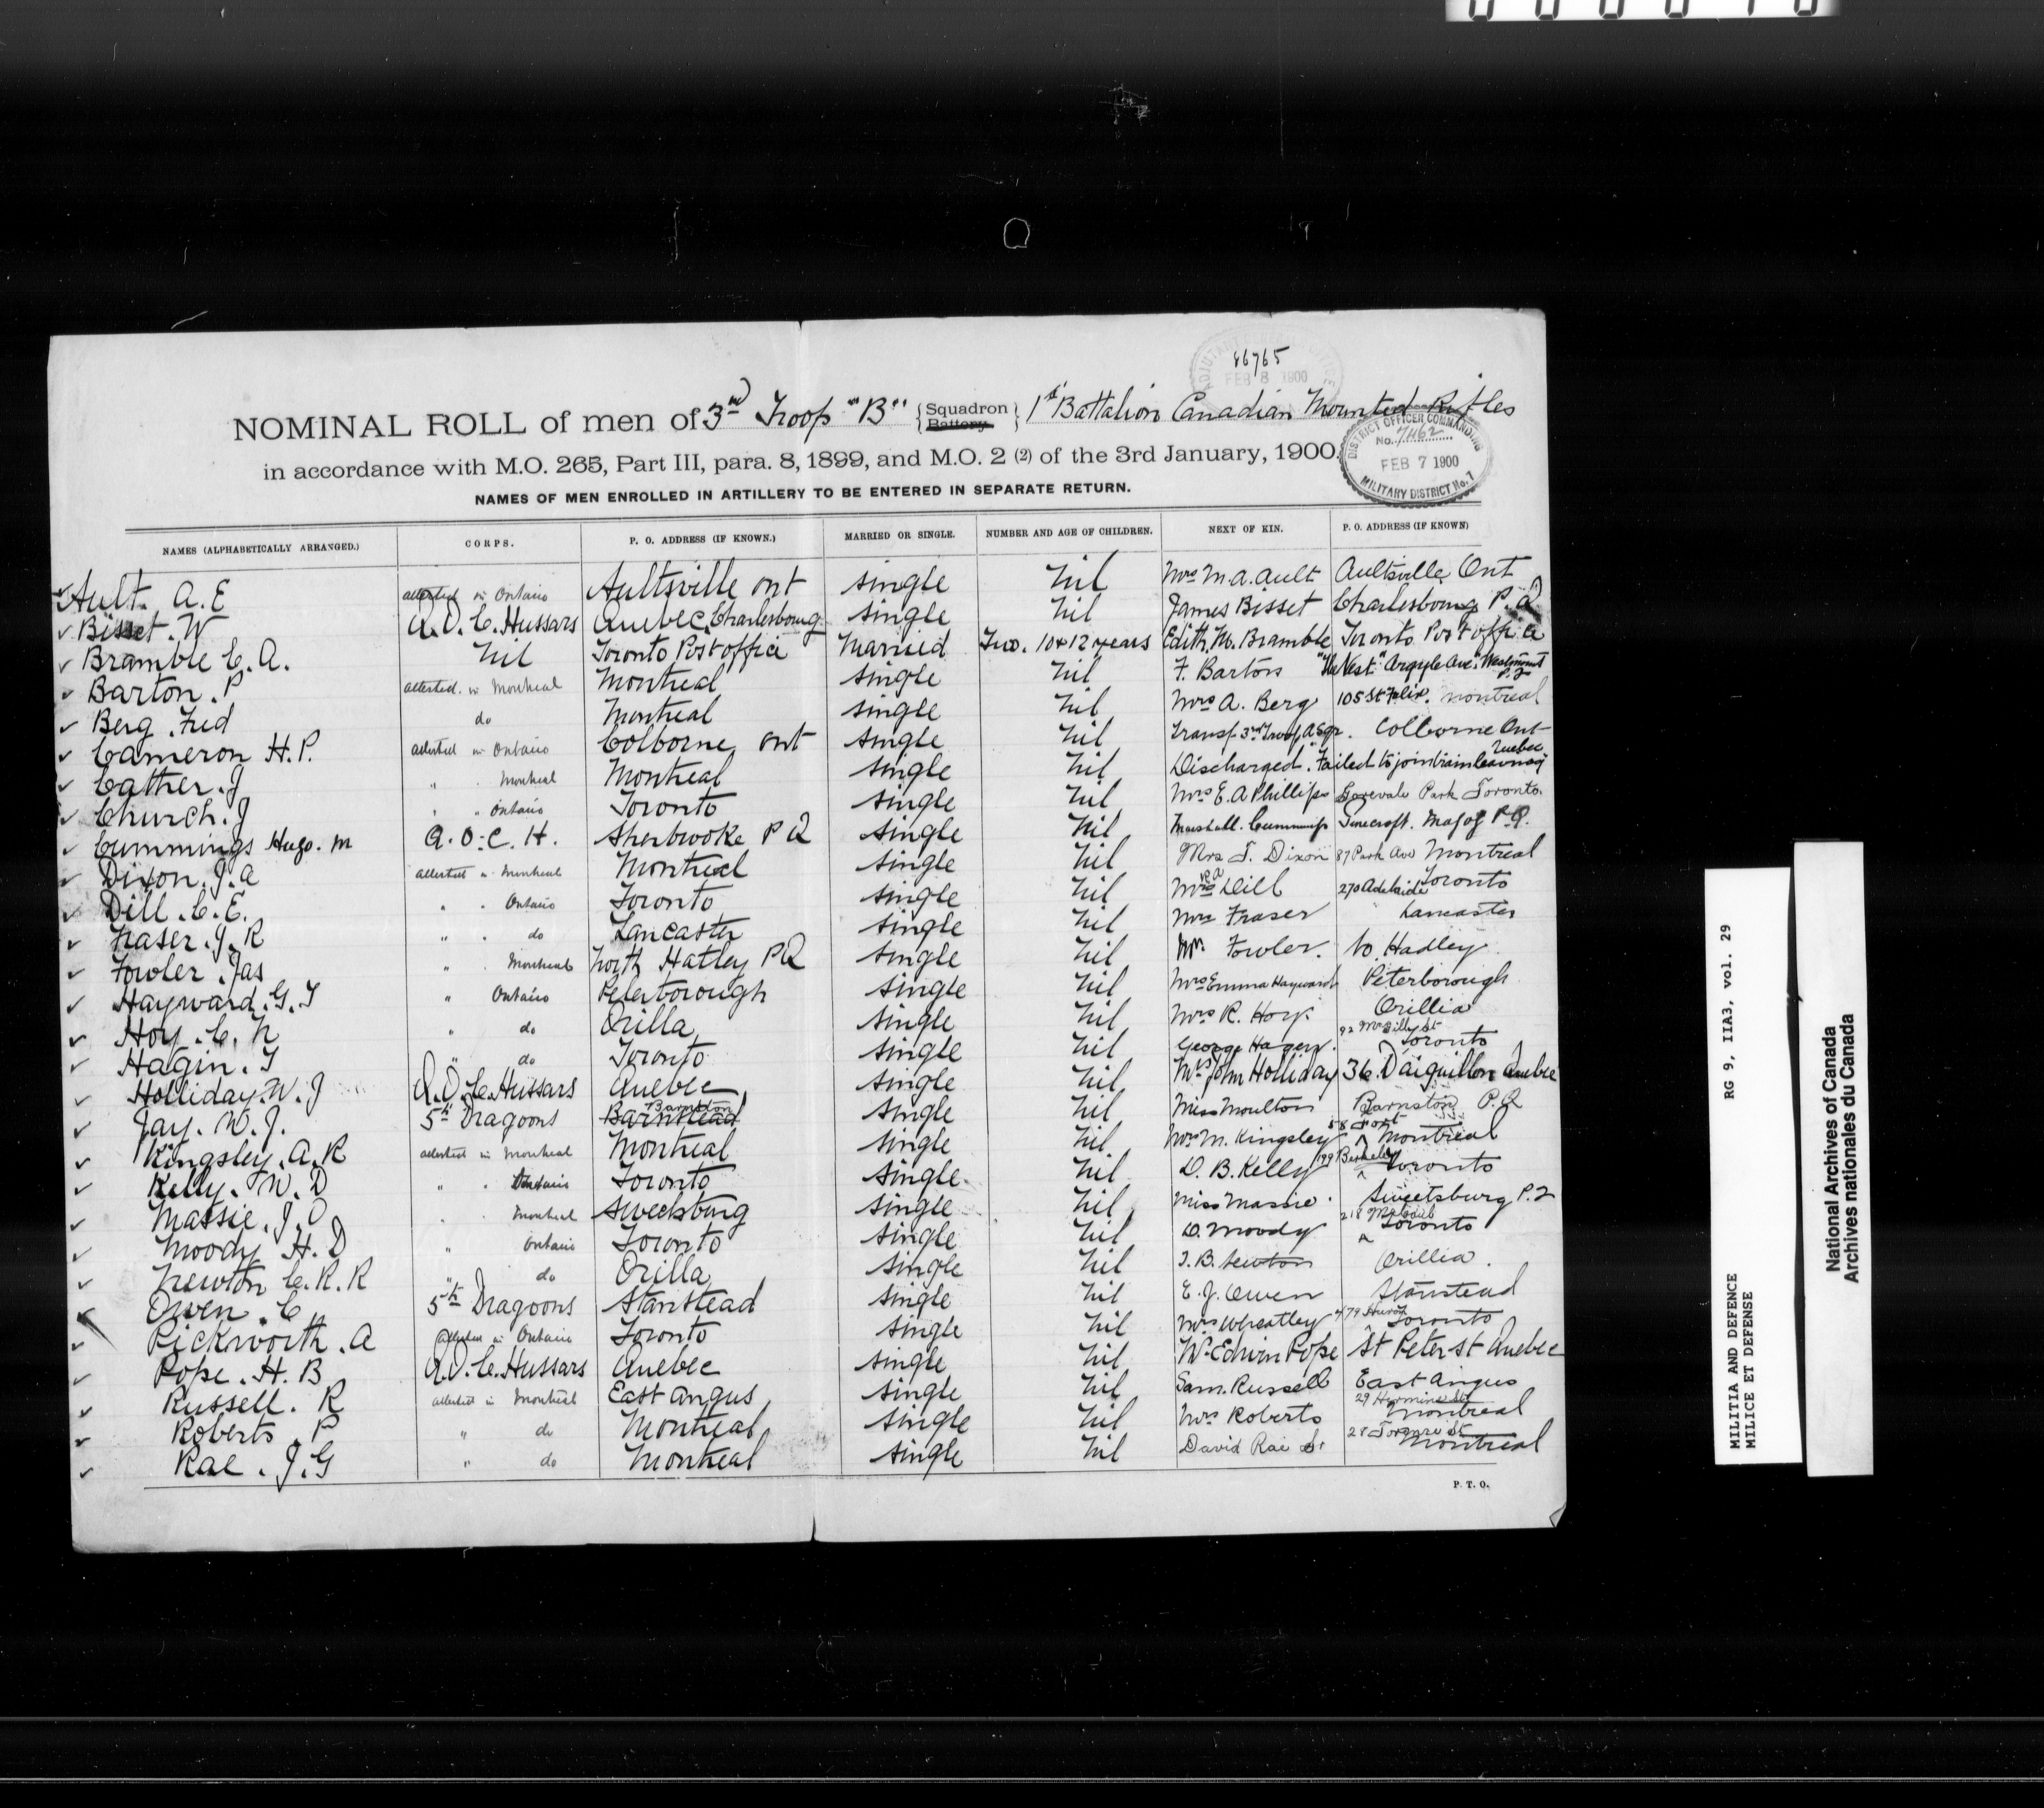 86765
FEB 8 1900
NOMINAL ROLL of men of 3rd Troop "B" {Squadron Battery} 1st Battalion Canadian Mounted Rifles
in accordance with M.O. 265, Part III, para. 8, 1899, and M.O. 2 (2) of the 3rd January, 1900.
DISTRICT OFFICER COMMANDING
No. 7462
FEB 7 1900
MILITARY DISTRICT No. 7
NAMES OF MEN ENROLLED IN ARTILLERY TO BE ENTERED IN SEPARATE RETURN.
NAMES (ALPHABETICALLY ARRANGED.) CORPS. P. O. ADDRESS (IF KNOWN.) MARRIED OR SINGLE. NUMBER AND AGE OF CHILDREN. NEXT OF KIN. P. O. ADDRESS (IF KNOWN)
Ault. A.E attested in Ontario Aultsville ont single nil Mrs M.A. Ault Aultsville Ont
Bisset. W Q.O.C. Hussars Quebec, Charlesbourg single nil James Bisset Charlesbourg P.Q
Bramble C.A. nil Toronto Post office Married Two. 10 & 12 years Edith M. Bramble Toronto Post office
Barton. P attested in Montreal Montreal single nil F. Barton "The Nest" Argyle Ave. Westmount P.Q
Berg. Fred do Montreal single nil Mrs A. Berg 105 St Felix. Montreal
Cameron H.P. attested in Ontario Colborne, ont single nil Transf. 3rd Troop, A Sqr. Colborne Ont
Cather. J " " Montreal Montreal single nil Discharged. Failed to join train leaving Quebec
Church. J " " Ontario Toronto single nil Mrs E.A Phillips Gorevale Park Toronto.
Cummings Hugo. M Q.O.C.H. Sherbrooke P Q single nil Marshall. Cummings Magog P.Q.
Dixon. J.A attested in Montreal Montreal single nil Mrs J. Dixon 87 Park Ave Montreal
Dill. C.E. " " Ontario Toronto single nil Mrs R A Dill 270 Adelaide Toronto
Fraser. J.R " " do Lancaster single nil Mrs Fraser Lancaster
Fowler. Jas " " Montreal North Hatley PQ single nil Mr. Fowler. No. Hadley
Hayward. G.T " Ontario Peterborough single nil Mrs Emma Hayward Peterborough
Hoy. C.N " do Orilla single nil Mrs R. Hoy Orillia
Hagin. T " do Toronto single nil George Hagen. 92 McGill St Toronto
Holliday. W.J Q.O.C. Hussars Quebec single nil Mrs John Holliday 36 D'aiguillon Quebec
Jay. W.J. 5th Dragoons Barnstead Barnston single nil Miss Moulton Barnston P.Q
Kingsley. A.R attested in Montreal Montreal single nil Mrs M. Kingsley 58 Fort Montreal
Kelly. W.D " " Ontario Toronto single nil D.B. Kelly 199 Berkeley Toronto
Massie. J.O " " Montreal Sweetsburg single nil Miss Massie Sweetsburg P.Q
Moody H.D " Ontario Toronto single nil D. Moody Toronto
Newton C.R.R " do Orilla single nil J.B. Newton Orillia.
Owen. C 5th Dragoons Stanstead single nil E.J. Owen Stanstead
Pickworth. A attested in Ontario Toronto single nil Mrs Wheatley 479 Huron Toronto
Pope. H.B Q.O.C. Hussars Quebec single nil Wm Edwin Pope St Peter st Quebec
Russell. R attested in Montreal East Angus single nil Sam. Russell East Angus
Roberts. P " do Montreal single nil Mrs Roberts 29 Hermine St Montreal
Rae. J.G " do Montreal single nil David Rae Sr Montreal
P. T. O.
MILITIA AND DEFENCE RG 9, IIA3, vol. 29
MILICE ET DEFENSE
National Archives of Canada
Archives nationales du Canada